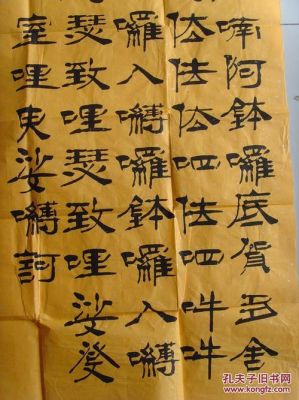 喃阿鉢囉底賀多舍
佉佉佉呬佉呬吽吽
囉入嚩囉鉢囉入嚩
瑟致哩瑟致哩娑癹
室哩曳娑嚩訶
孔夫子旧书网